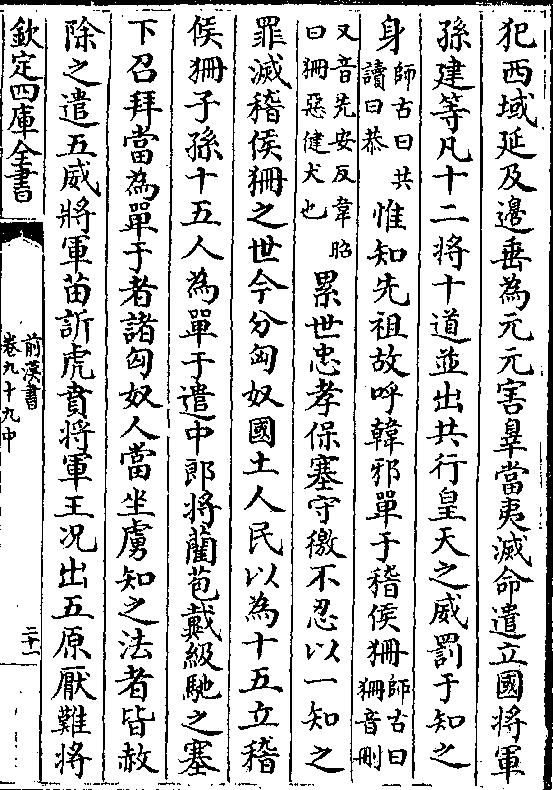 犯西域延及邊垂為元元害辠當夷滅命遣立國將軍
孫建等凡十二将十道並出共行皇天之威罰于知之
身師古曰共讀曰恭惟知先祖故呼韓邪單于稽侯狦師古曰狦音刪
又音先安反韋昭曰狦惡健犬也累世忠孝保塞守徼不忍以一知之
罪滅稽侯狦之世今分匈奴國土人民以為十五立稽
侯狦子孫十五人為單于遣中郎将藺苞戴級馳之塞
下召拜當為單于者諸匈奴人當坐虜知之法者皆赦
除之遣五威將軍苗訢虎賁将軍王况出五原厭難将
欽定四庫全書
前漢書
卷九十九中
二十一